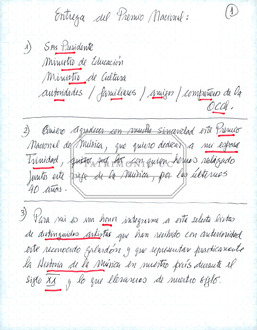 Entrega del Premio Nacional:
①
1) Sra Presidente
Ministro de Educación
Ministro de Cultura
autoridades / familiares / amigos / compañeros de la
OCCh.
2) Quiero agradecer con mucha sinceridad este Premio
Nacional de Música, que quiero dedicar a mi esposa
Trinidad, quien hemos
junto este viaje de la Música, por los últimos
40 años.
3) Para mí es un honor integrarme a esta selecta lista
de distinguidos artistas que han recibido con anterioridad
este reconocido galardón y que representan prácticamente
la Historia de la Música en nuestro país durante el
siglo XX y lo que llevamos de nuestro siglo.
PATRIMONIO